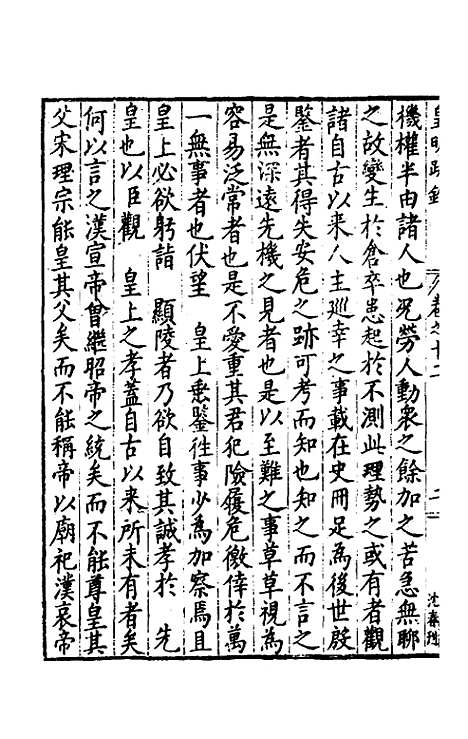 皇明疏鈔　卷之十二　二十一　沈
機權半由諸人也况勞人動衆之餘加之苦急無聊
之故變生於倉卒患起於不測此理勢之或有者觀
諸自古以來人主巡幸之事載在史冊足為後世殷
鑒者其得失安危之跡可考而知也知之而不言之
是無深遠先機之見者也是以至難之事草草視為
容易泛常者也是不愛重其君犯險履危徼倖於萬
一無事者也伏望　皇上垂鑒徃事少為加察焉且
皇上必欲躬詣　顯陵者乃欲自致其誠孝於　先
皇也以臣觀　皇上之孝蓋自古以來所未有者矣
何以言之漢宣帝曾繼昭帝之統矣而不能尊皇其
父宋理宗能皇其父矣而不能稱帝以廟祀漢哀帝